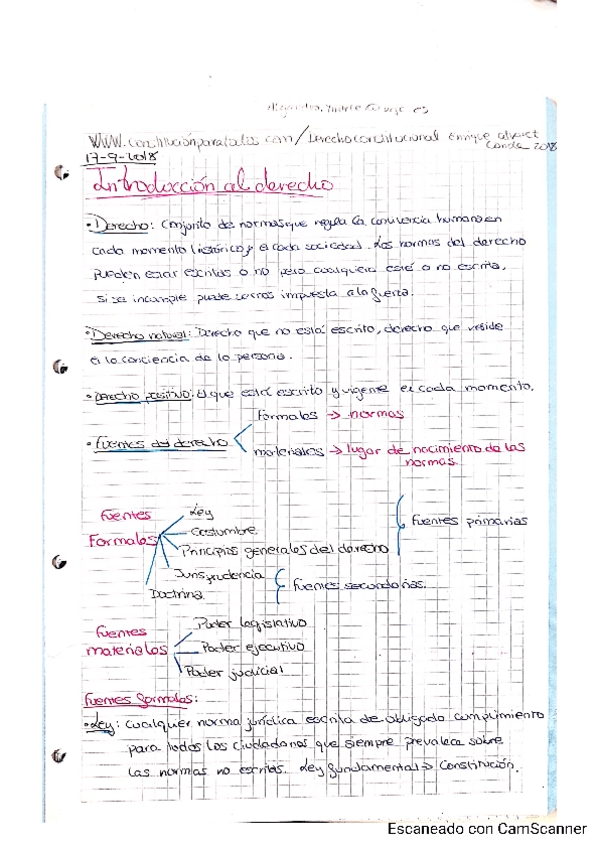 www.constituciónparatodos.com/Derechoconstitucional Enrique
Conde 2018
17-9-2018
Introducción al derecho
• Derecho: Conjunto de normas que regula la convivencia humana en
cada momento histórico y en cada sociedad. Las normas del derecho
pueden estar escritas o no pero cualquiera esté o no escrita,
si se incumple puede sernos impuesta a la fuerza.
• Derecho natural: Derecho que no está escrito, derecho que reside
en la conciencia de la persona.
• Derecho positivo: El que está escrito y vigente en cada momento.
• Fuentes del derecho
Formales → normas
materiales → lugar de nacimiento de las
normas.
Fuentes
Formales
Ley
Costumbre
Principios generales del derecho
Fuentes primarias
Jurisprudencia
Doctrina
Fuentes secundarias.
Fuentes
materiales
Poder legislativo
Poder ejecutivo
Poder judicial
Fuentes formales:
• Ley: cualquier norma jurídica escrita de obligado cumplimiento
para todos los ciudadanos que siempre prevalece sobre
las normas no escritas. Ley fundamental → Constitución.
Escaneado con CamScanner